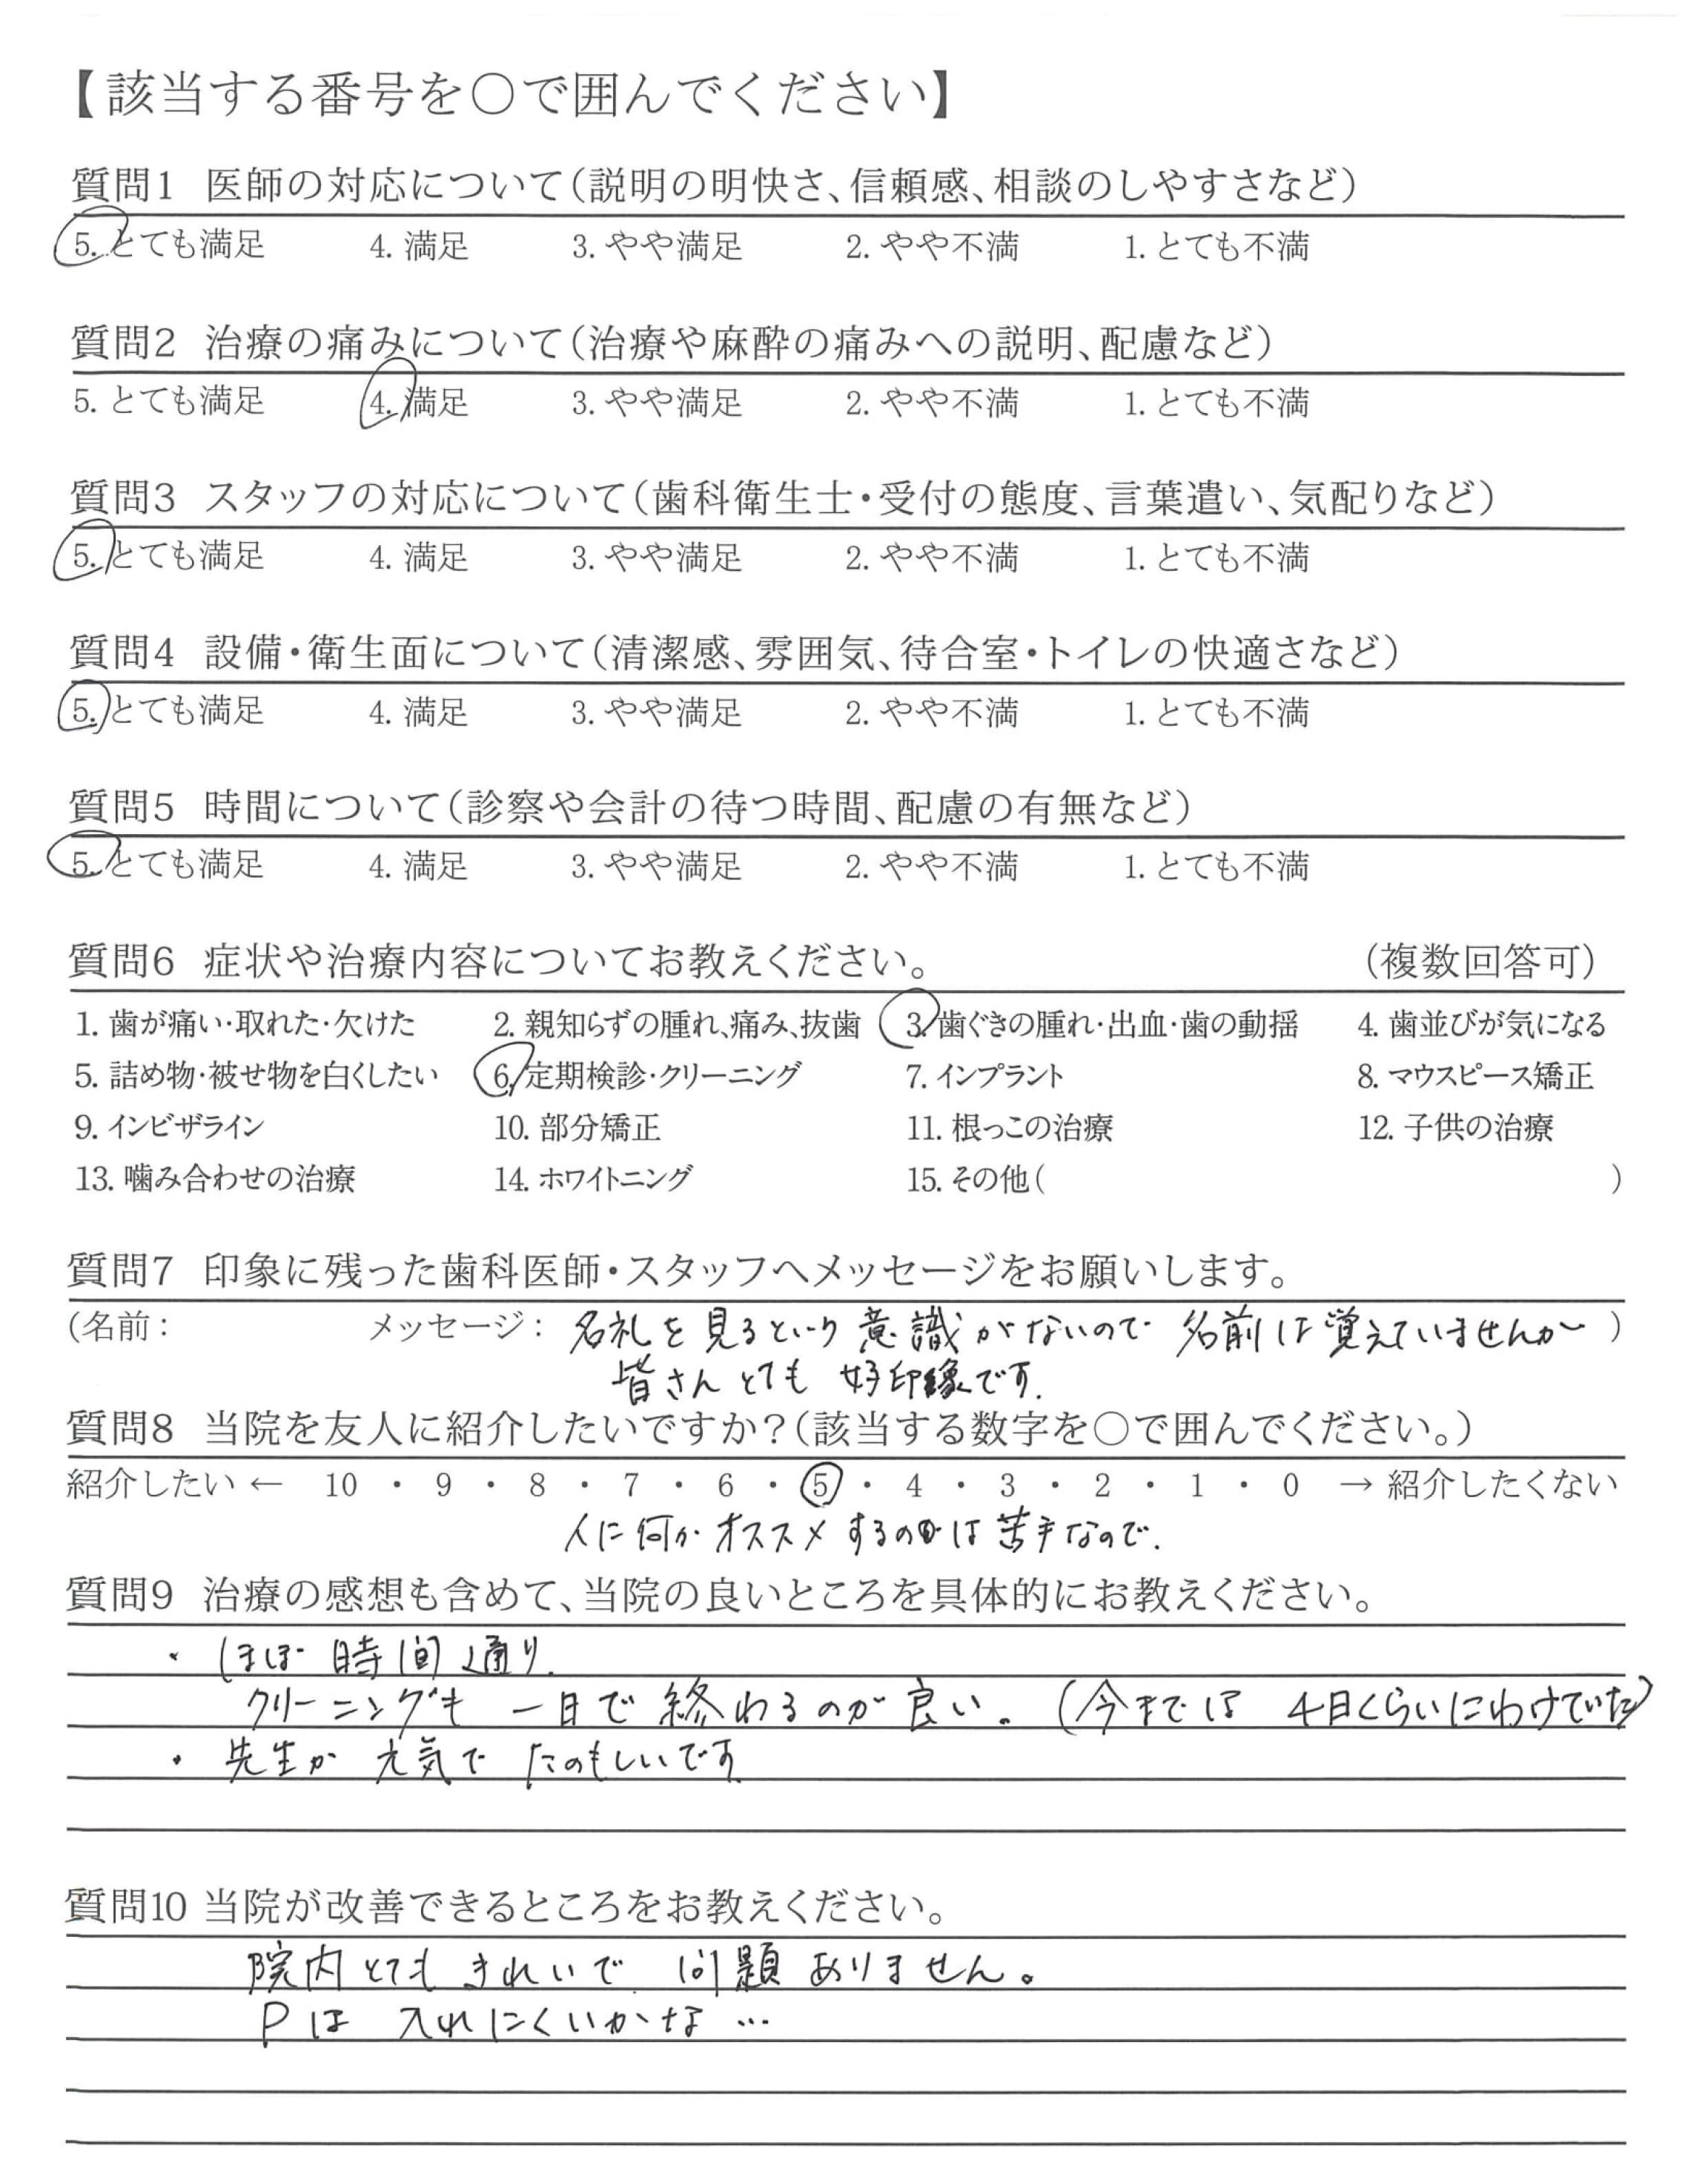 【該当する番号を○で囲んでください】
質問1 医師の対応について(説明の明快さ、信頼感、相談のしやすさなど)
5. とても満足 4. 満足 3. やや満足 2. やや不満 1. とても不満
質問2 治療の痛みについて(治療や麻酔の痛みへの説明、配慮など)
5. とても満足 4. 満足 3. やや満足 2. やや不満 1. とても不満
質問3 スタッフの対応について(歯科衛生士・受付の態度、言葉遣い、気配りなど)
5. とても満足 4. 満足 3. やや満足 2. やや不満 1. とても不満
質問4 設備・衛生面について(清潔感、雰囲気、待合室・トイレの快適さなど)
5. とても満足 4. 満足 3. やや満足 2. やや不満 1. とても不満
質問5 時間について(診察や会計の待つ時間、配慮の有無など)
5. とても満足 4. 満足 3. やや満足 2. やや不満 1. とても不満
質問6 症状や治療内容についてお教えください。 (複数回答可)
1. 歯が痛い・取れた・欠けた 2. 親知らずの腫れ、痛み、抜歯 3. 歯ぐきの腫れ・出血・歯の動揺 4. 歯並びが気になる
5. 詰め物・被せ物を白くしたい 6. 定期検診・クリーニング 7. インプラント 8. マウスピース矯正
9. インビザライン 10. 部分矯正 11. 根っこの治療 12. 子供の治療
13. 噛み合わせの治療 14. ホワイトニング 15. その他( )
質問7 印象に残った歯科医師・スタッフへメッセージをお願いします。
(名前: メッセージ: 名札を見るという意識がないので 名前は覚えていませんが )
皆さんとても 好印象です.
質問8 当院を友人に紹介したいですか?(該当する数字を○で囲んでください。)
紹介したい ← 10 ・ 9 ・ 8 ・ 7 ・ 6 ・ 5 ・ 4 ・ 3 ・ 2 ・ 1 ・ 0 → 紹介したくない
人に何か オススメ するのは 苦手なので.
質問9 治療の感想も含めて、当院の良いところを具体的にお教えください。
・ ほぼ 時間通り.
クリーニングも 一日で 終わるのが 良い。(今までは 4日くらいにわけていた)
・ 先生が 元気で たのもしいです
質問10 当院が改善できるところをお教えください。
院内とても きれいで 問題ありません。
Pは 入れにくいかな…